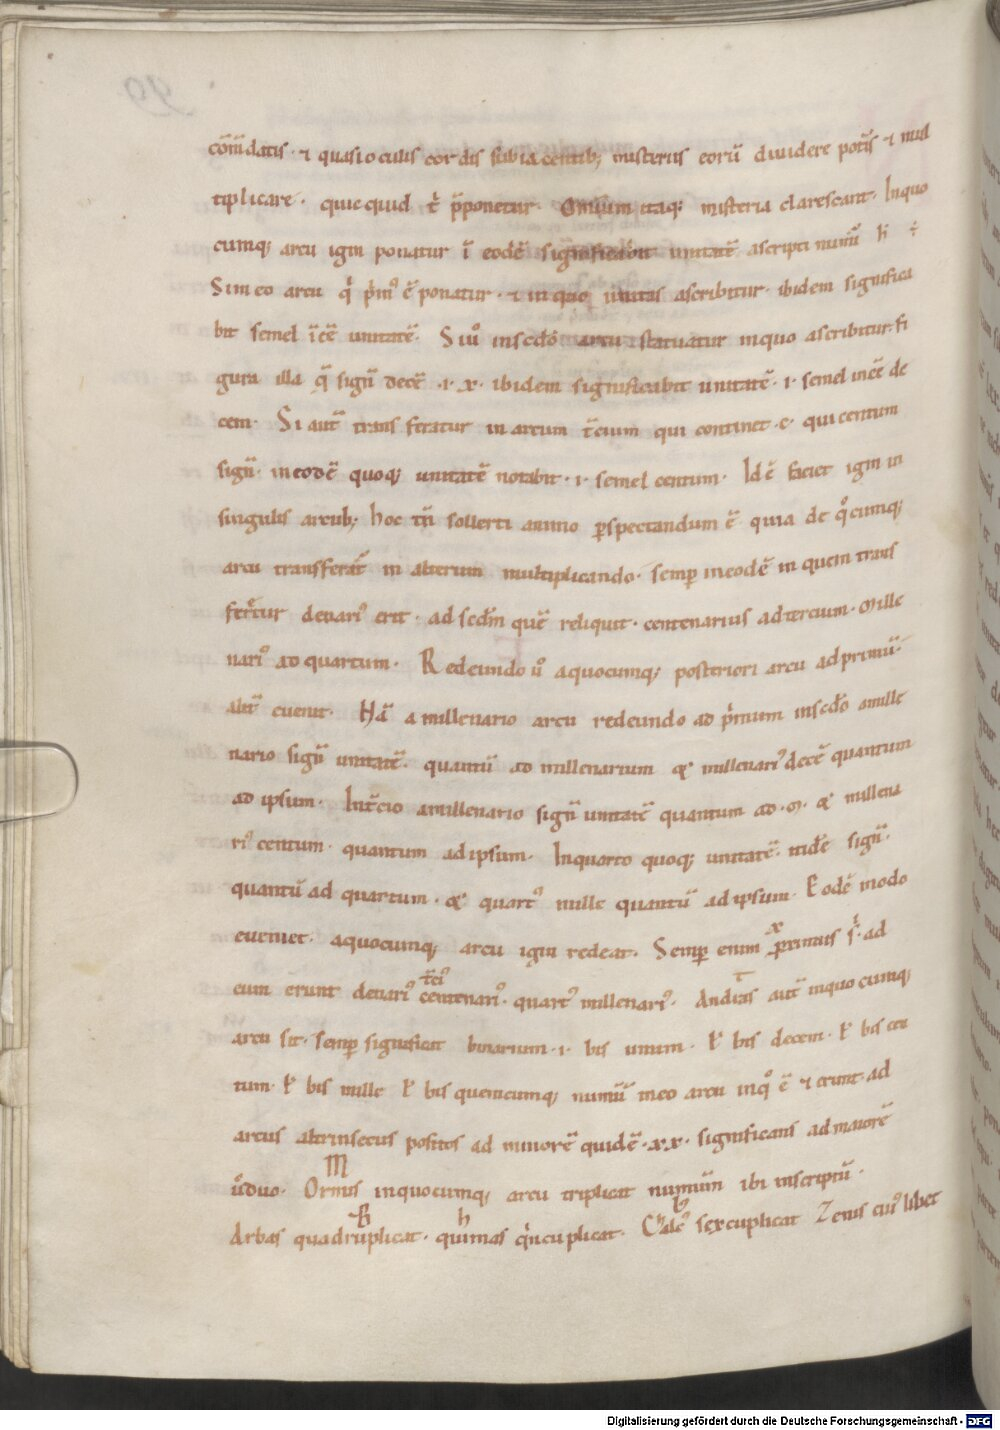 com̄datis · ⁊ quasi oculis cordis subiacentib; misteriis eorū diuidere pot̄is ⁊ mul
tiplicare · quicquid t̄ p̄ponetur · Omnium itaq; misteria clarescant · In quo
cumq; arcu igin ponatur ī eodē significabit unitatē ascripti num̄i
Si in eo arcu q̄ p̄m᷒ ē ponatur · ⁊ in quo unitas ascribitur · ibidem significa
bit semel unitatē · Si u̇ in scd̄o arcu statuatur in quo ascribitur fi
gura illa q̄ sign̄ decē · i · x · ibidem significabit unitatē · i · semel decē
cem · Si aut̄ transferatur in arcum t̄cium qui continet · c · qui centum
sign̄ · in eodē quoq; unitatē notabit · i · semel centum · Id ē faciet igin in
singulis arcub; hoc tn̄ sollerti animo p̲spectandum ē quia de q̊cumq;
arcu transferat̄ in alterum multiplicando · semp̲ in eodē in quem trans
fertur denari᷒ erit · ad scd̄m quē reliquit · centenarius ad tercium · mille
nari᷒ ad quartum · Redeundo u̇ a quocumq; posteriori arcu ad primū ·
alit̄ euenit · Nā a millenario arcu redeundo ad p̄mum in scd̄o a mille
nario sign̄ unitatē · quantū ad millenarium millenari᷒ decē quantum
ad ipsum · In t̄cio a millenario sign̄ unitatē quantum ad · m · millena
ri᷒ centum · quantum ad ipsum · In quarto quoq; unitatē itidē sign̄ ·
quantū ad quartum · quart᷒ mille quantū ad ipsum · Eodē modo
eueniet · a quocumq; arcu igin redeat · Semp̲ enim primus ad
eum erunt denari᷒ t̄ci᷒ centenari᷒ · quart᷒ millenari᷒ · Andras aut̄ in quocumq;
arcu sit · semp̲ significat binarium · i · bis unum · ł bis decem · ł bis cen
tum · ł bis mille ł bis quemcumq; numū in eo arcu in q̊ ē ⁊ erunt ad
arcus altrinsecus positos ad minorē quidē · xx · significans ad maiorē
u̇ duo · Ormis in quocumq; arcu triplicat numūm ibi inscriptū ·
Arbas quadruplicat · quimas q̄ncuplicat · Calc᷒ sexcuplicat Zenis cui᷒libet
Digitalisierung gefördert durch die Deutsche Forschungsgemeinschaft - DFG